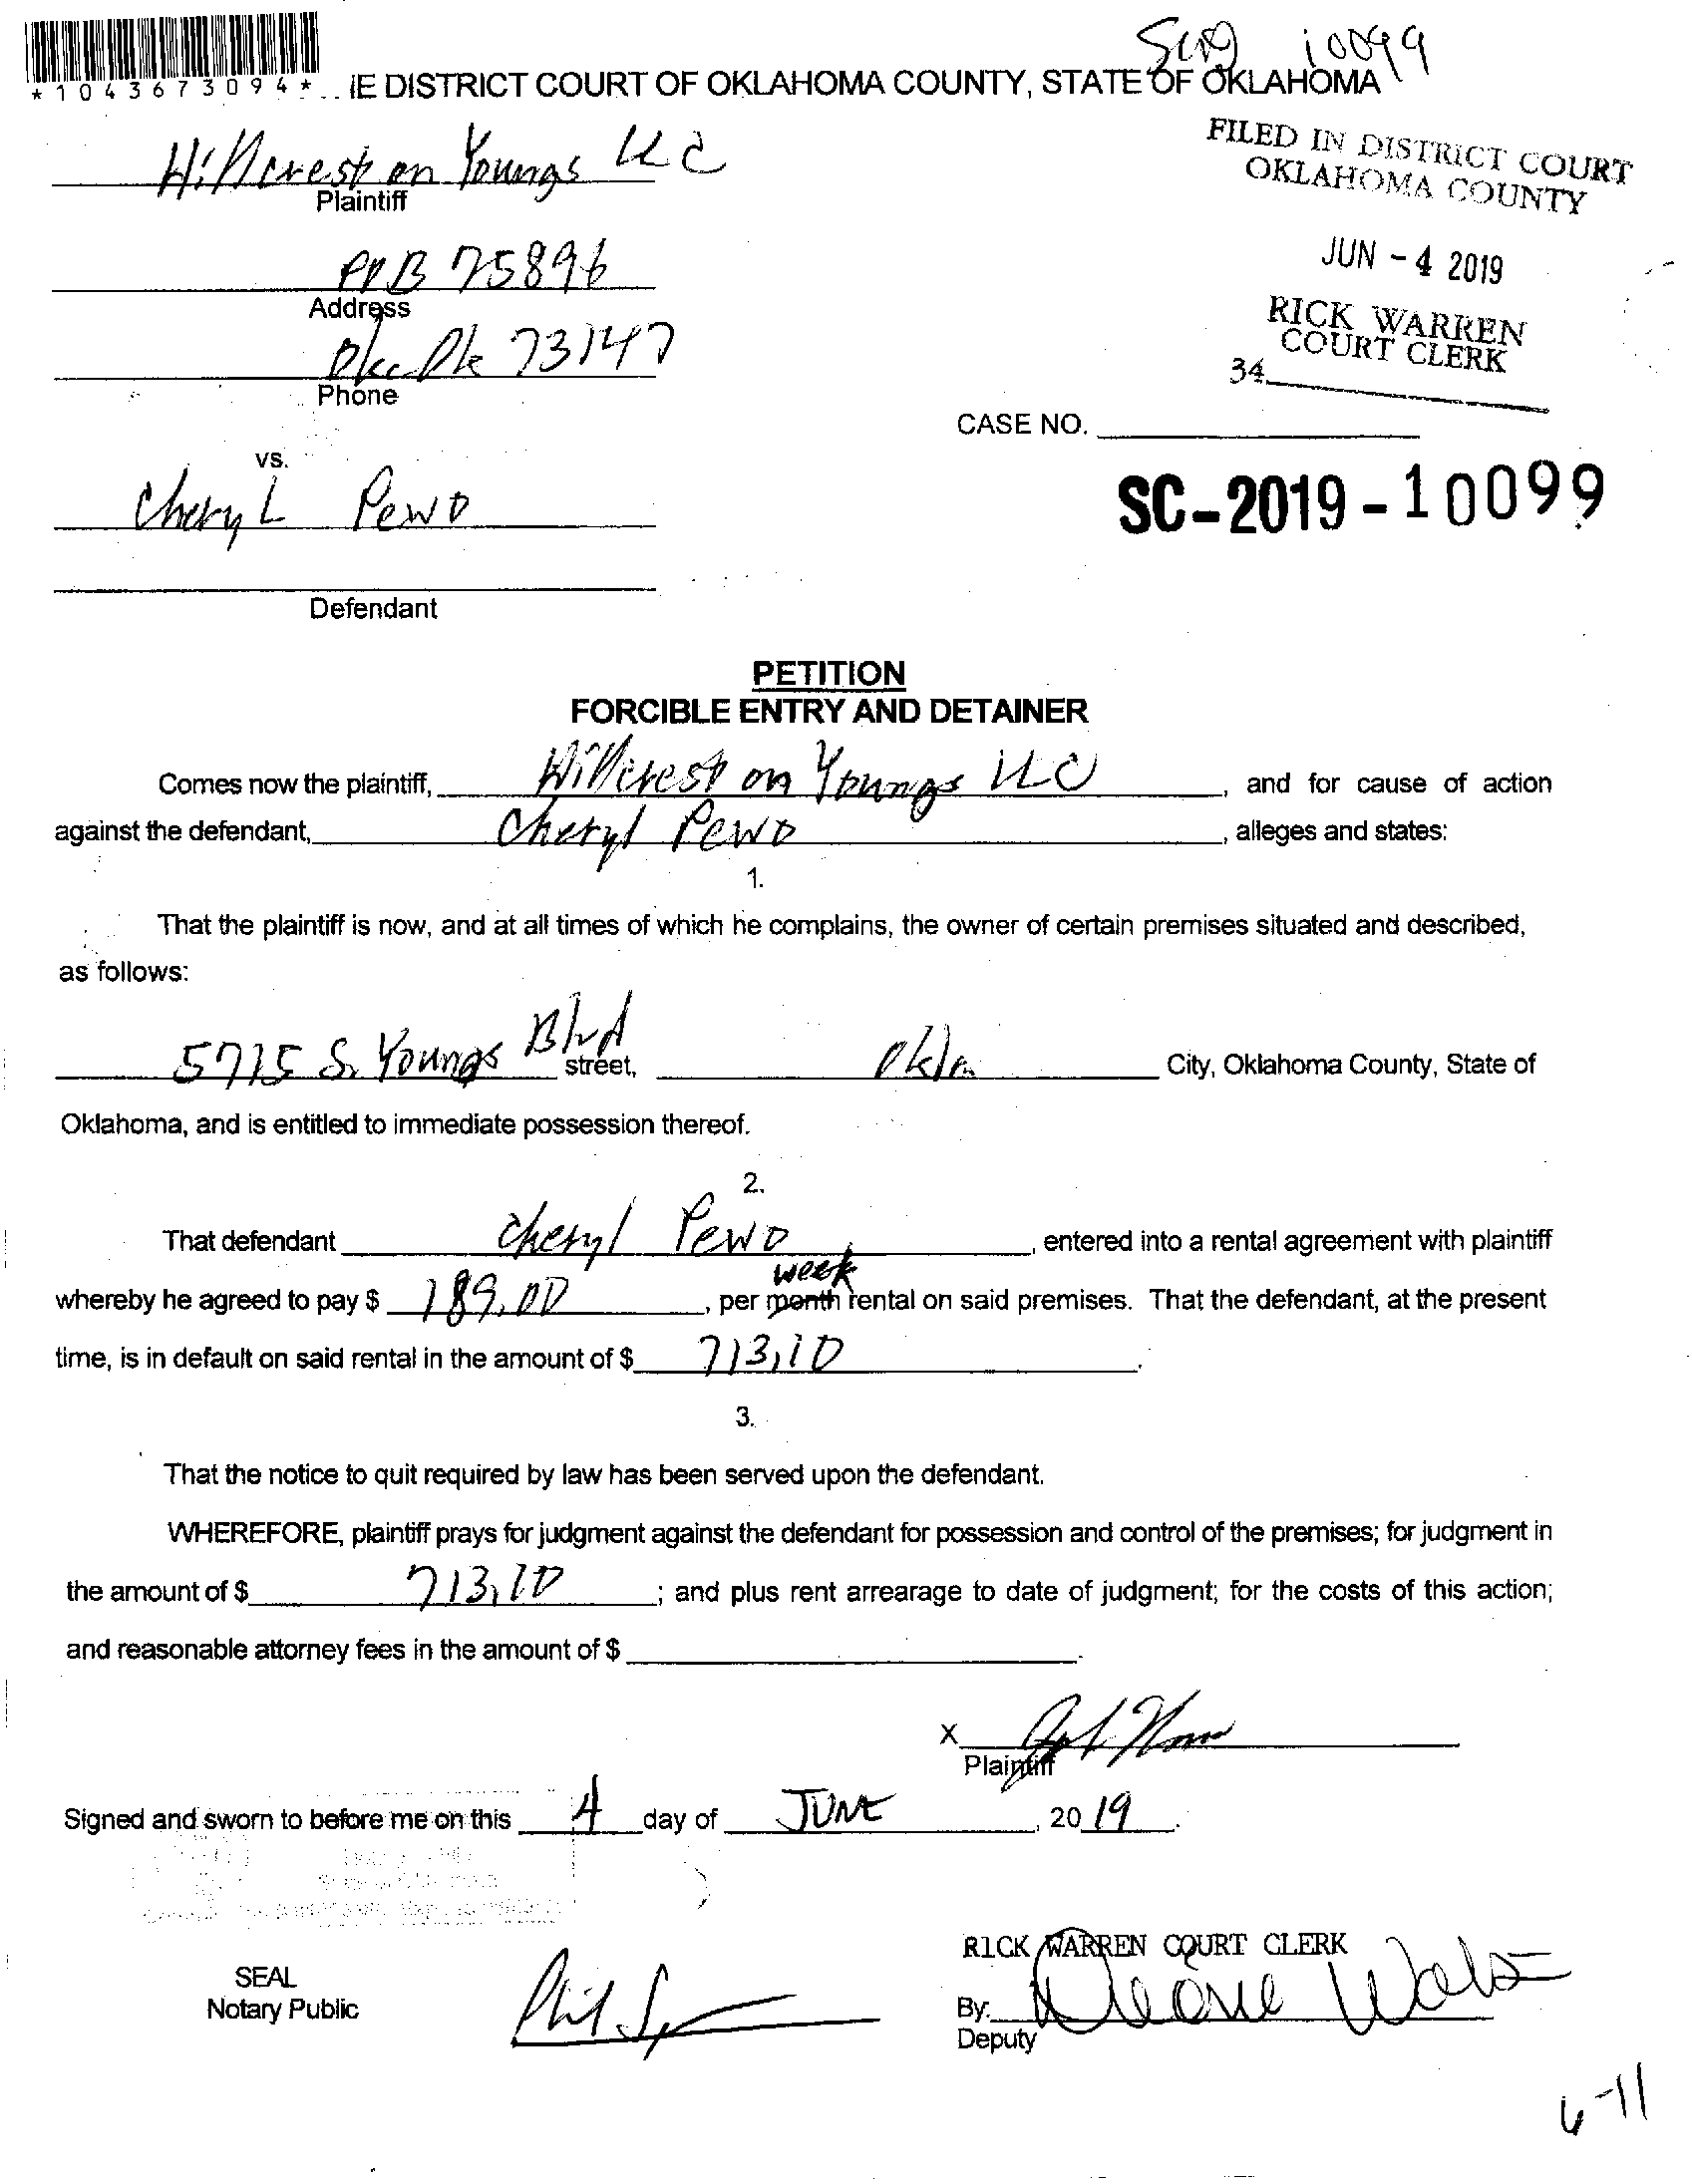 10099
*1043673094* IE DISTRICT COURT OF OKLAHOMA COUNTY, STATE OF OKLAHOMA
Hillcrest on Youngs LLC
Plaintiff
FILED IN DISTRICT COURT
OKLAHOMA COUNTY
JUN - 4 2019
RICK WARREN
COURT CLERK
34
75896
Address
Okc Ok 73147
Phone
CASE NO.
vs.
Cheryl Pewo
SC-2019-10099
Defendant
PETITION
FORCIBLE ENTRY AND DETAINER
Comes now the plaintiff, Hillcrest on Youngs LLC, and for cause of action
against the defendant, Cheryl Pewo, alleges and states:
1.
That the plaintiff is now, and at all times of which he complains, the owner of certain premises situated and described,
as follows:
5715 S. Youngs Blvd street, Okla City, Oklahoma County, State of
Oklahoma, and is entitled to immediate possession thereof.
2.
That defendant Cheryl Pewo, entered into a rental agreement with plaintiff
week
whereby he agreed to pay $ 189.00, per month rental on said premises. That the defendant, at the present
time, is in default on said rental in the amount of $ 713,10.
3.
That the notice to quit required by law has been served upon the defendant.
WHEREFORE, plaintiff prays for judgment against the defendant for possession and control of the premises; for judgment in
the amount of $ 713,10; and plus rent arrearage to date of judgment; for the costs of this action;
and reasonable attorney fees in the amount of $
X
Plaintiff
Signed and sworn to before me on this 4 day of JUNE, 20 19.
RICK WARREN COURT CLERK
SEAL
Notary Public
By:
Deputy
6-11